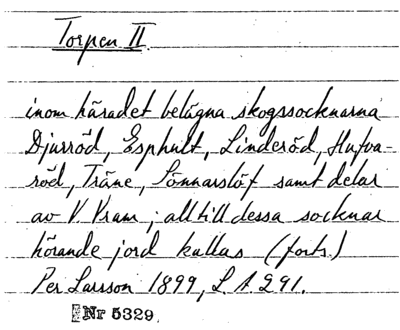 Torpen II
inom häradet belägna skogssocknarna
Djurröd, Esphult, Linderöd, Hufva-
röd, Träne, Sönnarslöf samt delar
av V. Vram; all till dessa socknar
hörande jord kallas (forts.)
Per Larsson 1899, L. A. 291.
Nr 5329